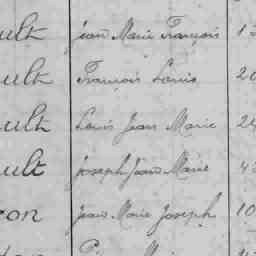 ult Jean Marie François 1
ult François Louis 20
ult Louis Jean Marie 2
ult Joseph Jean Marie 4
on Jean Marie Joseph 10